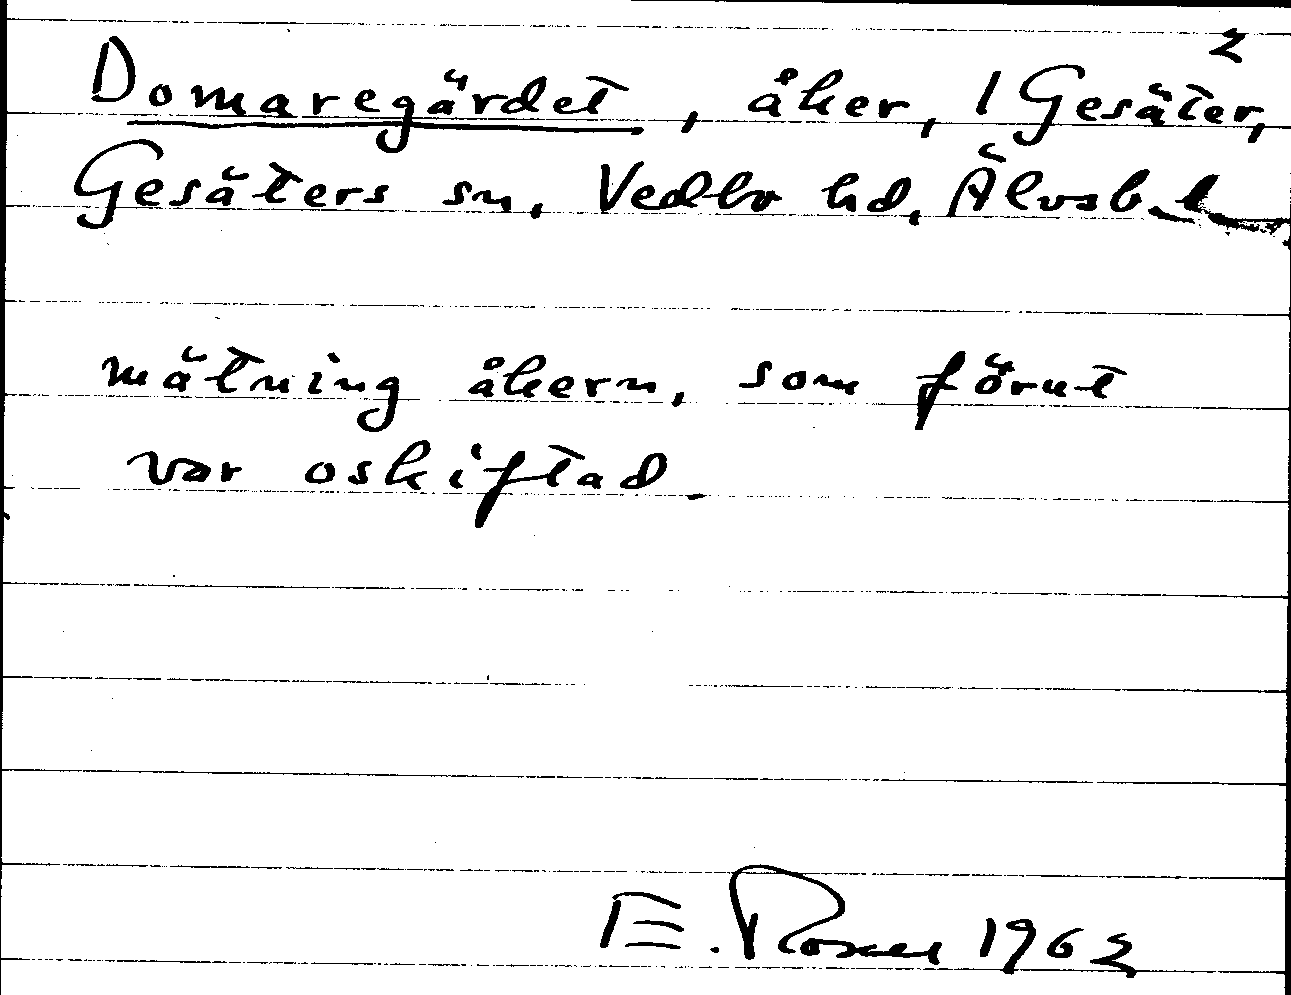 2
Domaregärdet, åker, 1 Gesäter,
Gesäters sn, Vedbo hd, Älvsb. l
mätning åkern, som förut
var oskiftad.
E. 1962